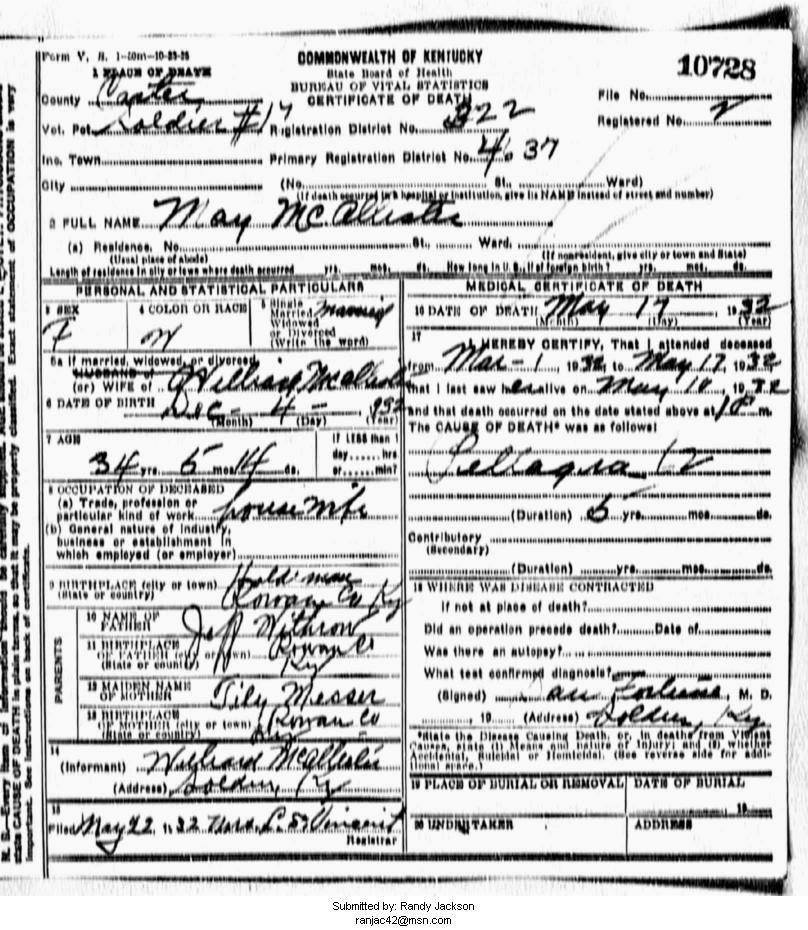 Form V. S. 1-50m-10-23-25
COMMONWEALTH OF KENTUCKY
State Board of Health
BUREAU OF VITAL STATISTICS
CERTIFICATE OF DEATH
10728
1 PLACE OF DEATH
County Carter
File No.
Vot. Pct. Soldier #17 Registration District No. 322
Registered No. 2
Inc. Town Primary Registration District No. 4037
City (No. St. Ward)
(If death occurred in a hospital or institution, give its NAME instead of street and number)
2 FULL NAME May McAllister
(a) Residence. No. St. Ward.
(Usual place of abode) (If nonresident, give city or town and State)
Length of residence in city or town where death occurred yrs. mos. ds. How long in U. S., if of foreign birth? yrs. mos. ds.
PERSONAL AND STATISTICAL PARTICULARS
3 SEX
F
4 COLOR OR RACE
W
5 Single
Married
Widowed
or Divorced
(Write the word)
married
5a If married, widowed, or divorced
HUSBAND of
(or) WIFE of McAllister
6 DATE OF BIRTH Dec - 4 -
(Month) (Day) (Year)
7 AGE
34 yrs. 5 mos. 14 ds.
If LESS than 1
day hrs
or min?
8 OCCUPATION OF DECEASED
(a) Trade, profession or
particular kind of work house wife
(b) General nature of industry,
business or establishment in
which employed (or employer)
9 BIRTHPLACE (city or town) Haldeman
(State or country) Rowan Co Ky
PARENTS
10 NAME OF
FATHER Jeff Withrow
11 BIRTHPLACE
OF FATHER (city or town) Rowan Co
(State or country) Ky
12 MAIDEN NAME
OF MOTHER Tily Messer
13 BIRTHPLACE
OF MOTHER (city or town) Rowan Co
(State or country) Ky
14
(Informant) McAllister
(Address) Soldier, Ky
15
Filed May 22, 1932 Mrs. Vincent
Registrar
MEDICAL CERTIFICATE OF DEATH
16 DATE OF DEATH May 17 1932
(Month) (Day) (Year)
17
I HEREBY CERTIFY, That I attended deceased
from Mar - 1, 1932 to May 17, 1932
that I last saw her alive on May 10, 1932
and that death occurred on the date stated above at m.
The CAUSE OF DEATH* was as follows:
Pellagra
(Duration) 5 yrs. mos. ds.
Contributory
(Secondary)
(Duration) yrs. mos. ds.
18 WHERE WAS DISEASE CONTRACTED
If not at place of death?
Did an operation precede death? Date of
Was there an autopsy?
What test confirmed diagnosis?
(Signed) Fortune, M. D.
, 19 (Address) Soldier, Ky
*State the Disease Causing Death, or, in deaths from Violent
Causes, state (1) Means and nature of Injury; and (2) whether
Accidental, Suicidal or Homicidal. (See reverse side for addi-
tional space.)
19 PLACE OF BURIAL OR REMOVAL DATE OF BURIAL
19
20 UNDERTAKER ADDRESS
N. B.—Every item of information should be carefully supplied.
state CAUSE OF DEATH in plain terms, so that it may be properly classified. Exact statement of OCCUPATION is very
important. See instructions on back of certificate.
Submitted by: Randy Jackson
ranjac42@msn.com